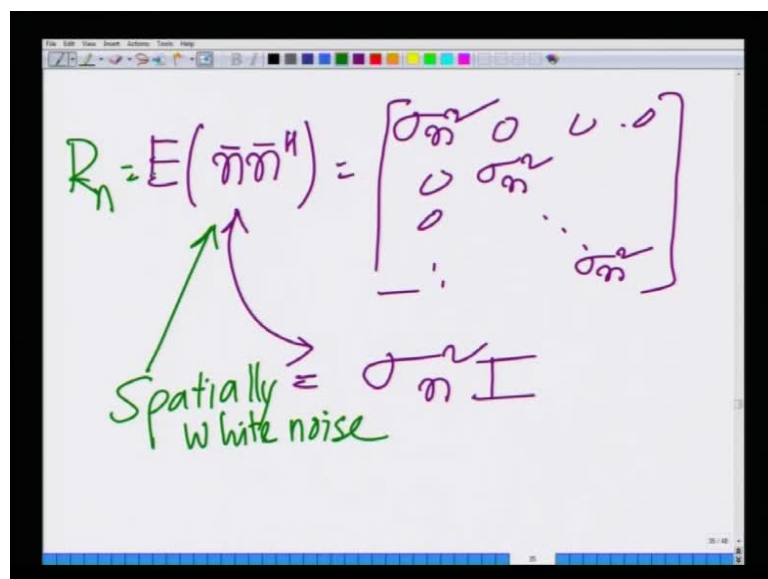 File Edit View Insert Actions Tools Help
R_n = E(n̄ n̄^H) = [σ_n^2 0 0 . 0
0 σ_n^2
0 ⋱
⋮ σ_n^2]
= σ_n^2 I
Spatially
white noise
35 / 48
35